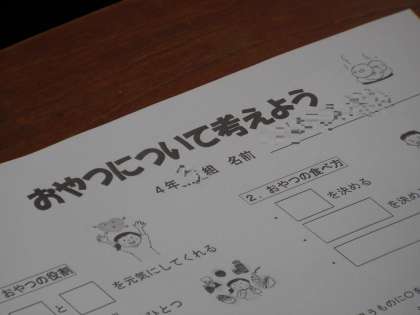 おやつについて考えよう
4年 組 名前
おやつの役割
を元気にしてくれる
と
ひとつ
2. おやつの食べ方
を決める
を決め